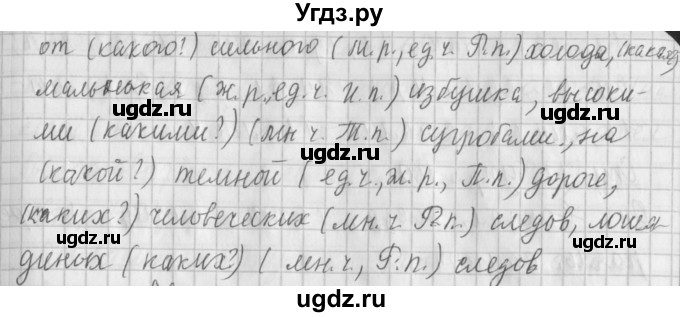 Угдз.ру
от (какого?) сильного (м.р., ед.ч. Р.п.) холода, (какая?)
маленькая (ж.р., ед.ч. И.п.) избушка, высоки-
ми (какими?) (мн.ч. Т.п.) сугробами, на
(какой?) темной (ед.ч., ж.р., П.п.) дороге,
(каких?) человеческих (мн.ч. Р.п.) следов, лоша-
диных (каких?) (мн.ч., Р.п.) следов
ugdz.ru ugdz.ru ugdz.ru
ugdz.ru ugdz.ru
ugdz.ru ugdz.ru
ugdz.ru ugdz.ru